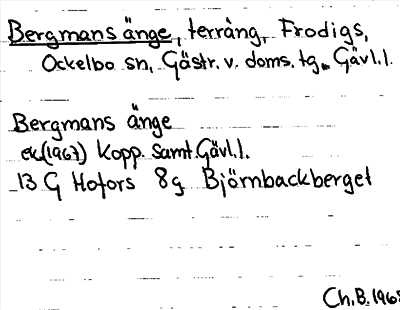 Bergmans änge, terräng, Frodigs,
Ockelbo sn, Gästr. v. doms. tg. Gävl. l.
Bergmans änge
ek(1967) Kopp. samt Gävl. l.
13 G Hofors 8g Björnbackberget
Ch. B. 1968